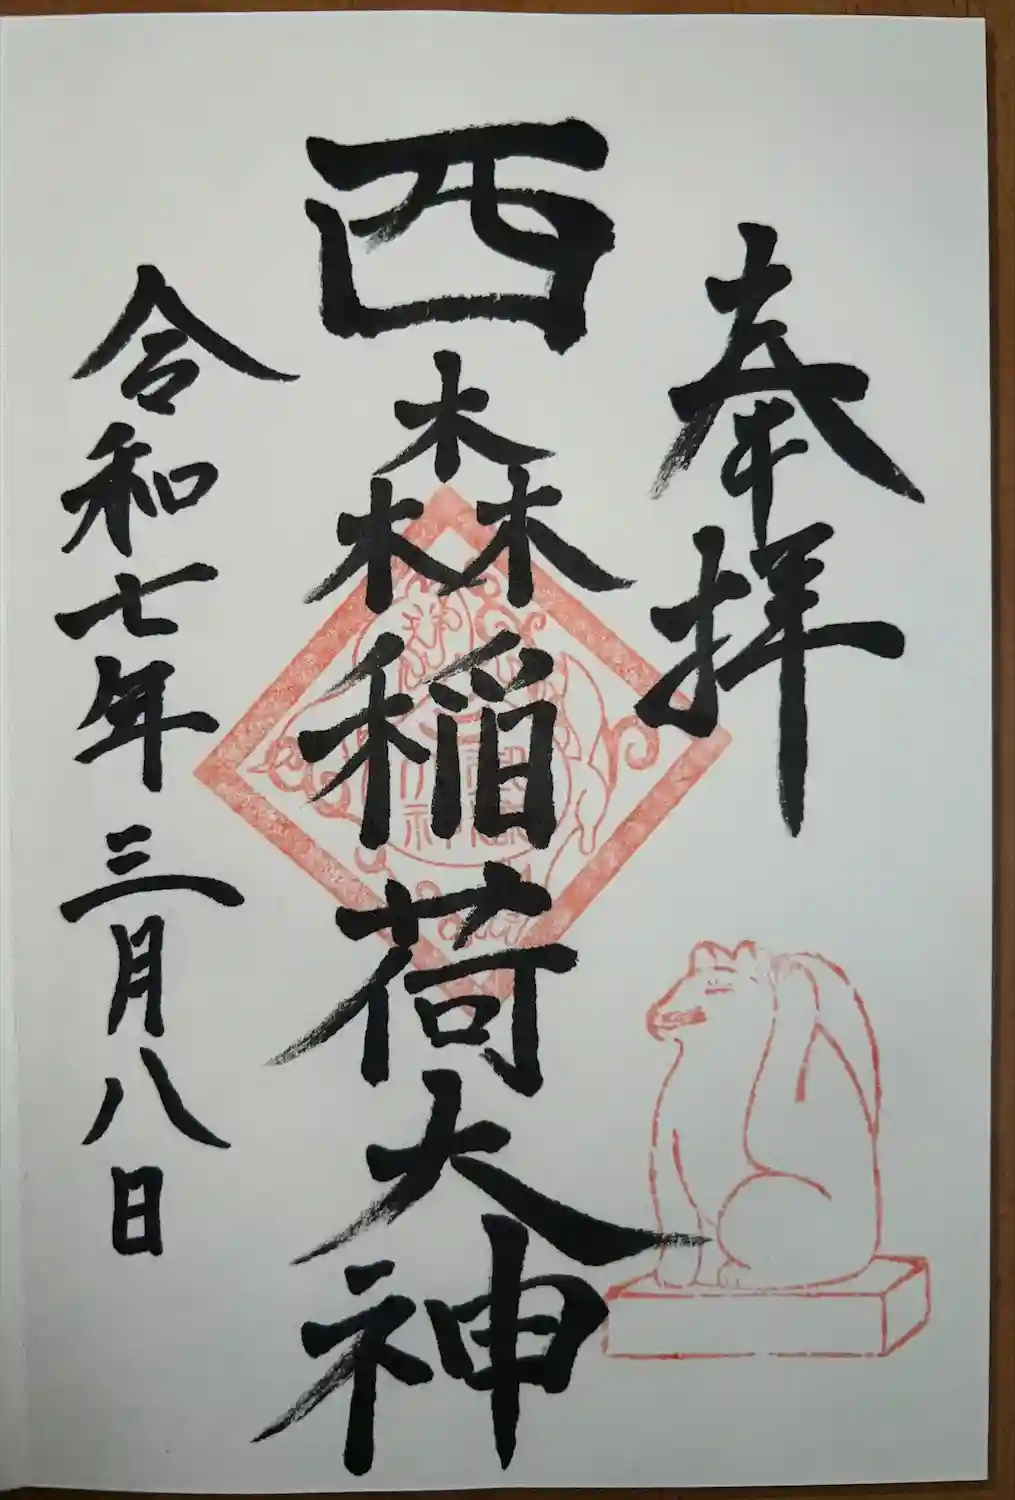 奉拝
西森稲荷大神
令和七年三月八日